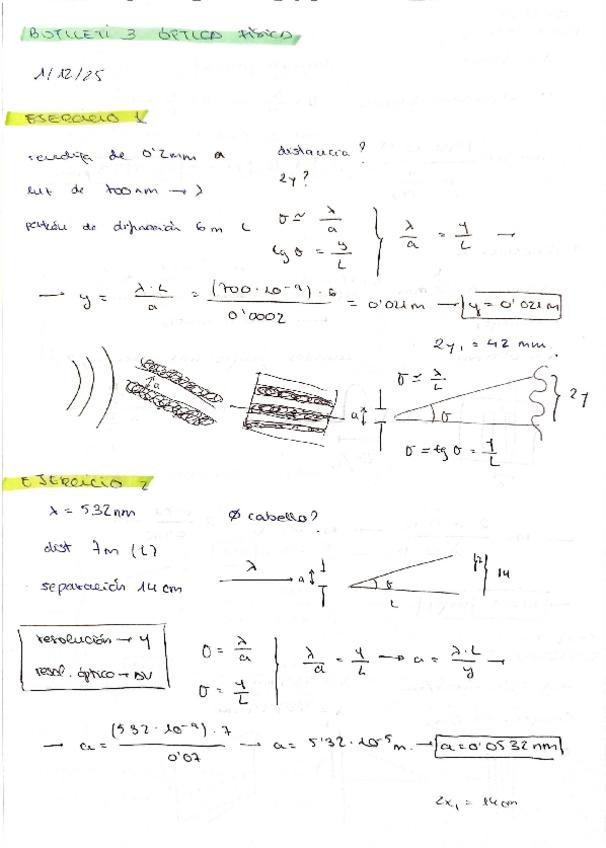 BUTLLETÍ 3 ÓPTICA FÍSICA
1/12/25
EJERCICIO 1
rendija de 0'2mm a    distancia?
luz de 700nm → λ    2y?
patrón de difracción 6 m L    σ ≃ λ/a    tg σ = y/L } λ/a = y/L →
→ y = λ·L/a = (700·10⁻⁹)·6/0'0002 = 0'021m → y = 0'021m
2y₁ = 42 mm.
a    a    σ ≃ λ/L    σ    2y
σ = tg σ = y/L
EJERCICIO 2
λ = 532nm    Ø cabello?
dist 7m (L)
separación 14cm    λ    a    θ    L    14
resolución → y    σ = λ/a
resol. óptico → DV    σ = y/L } λ/a = y/L → a = λ·L/y →
→ a = (532·10⁻⁹)·7/0'07 → a = 5'32·10⁻⁵m. → a = 0'0532nm
2x₁ = 14cm